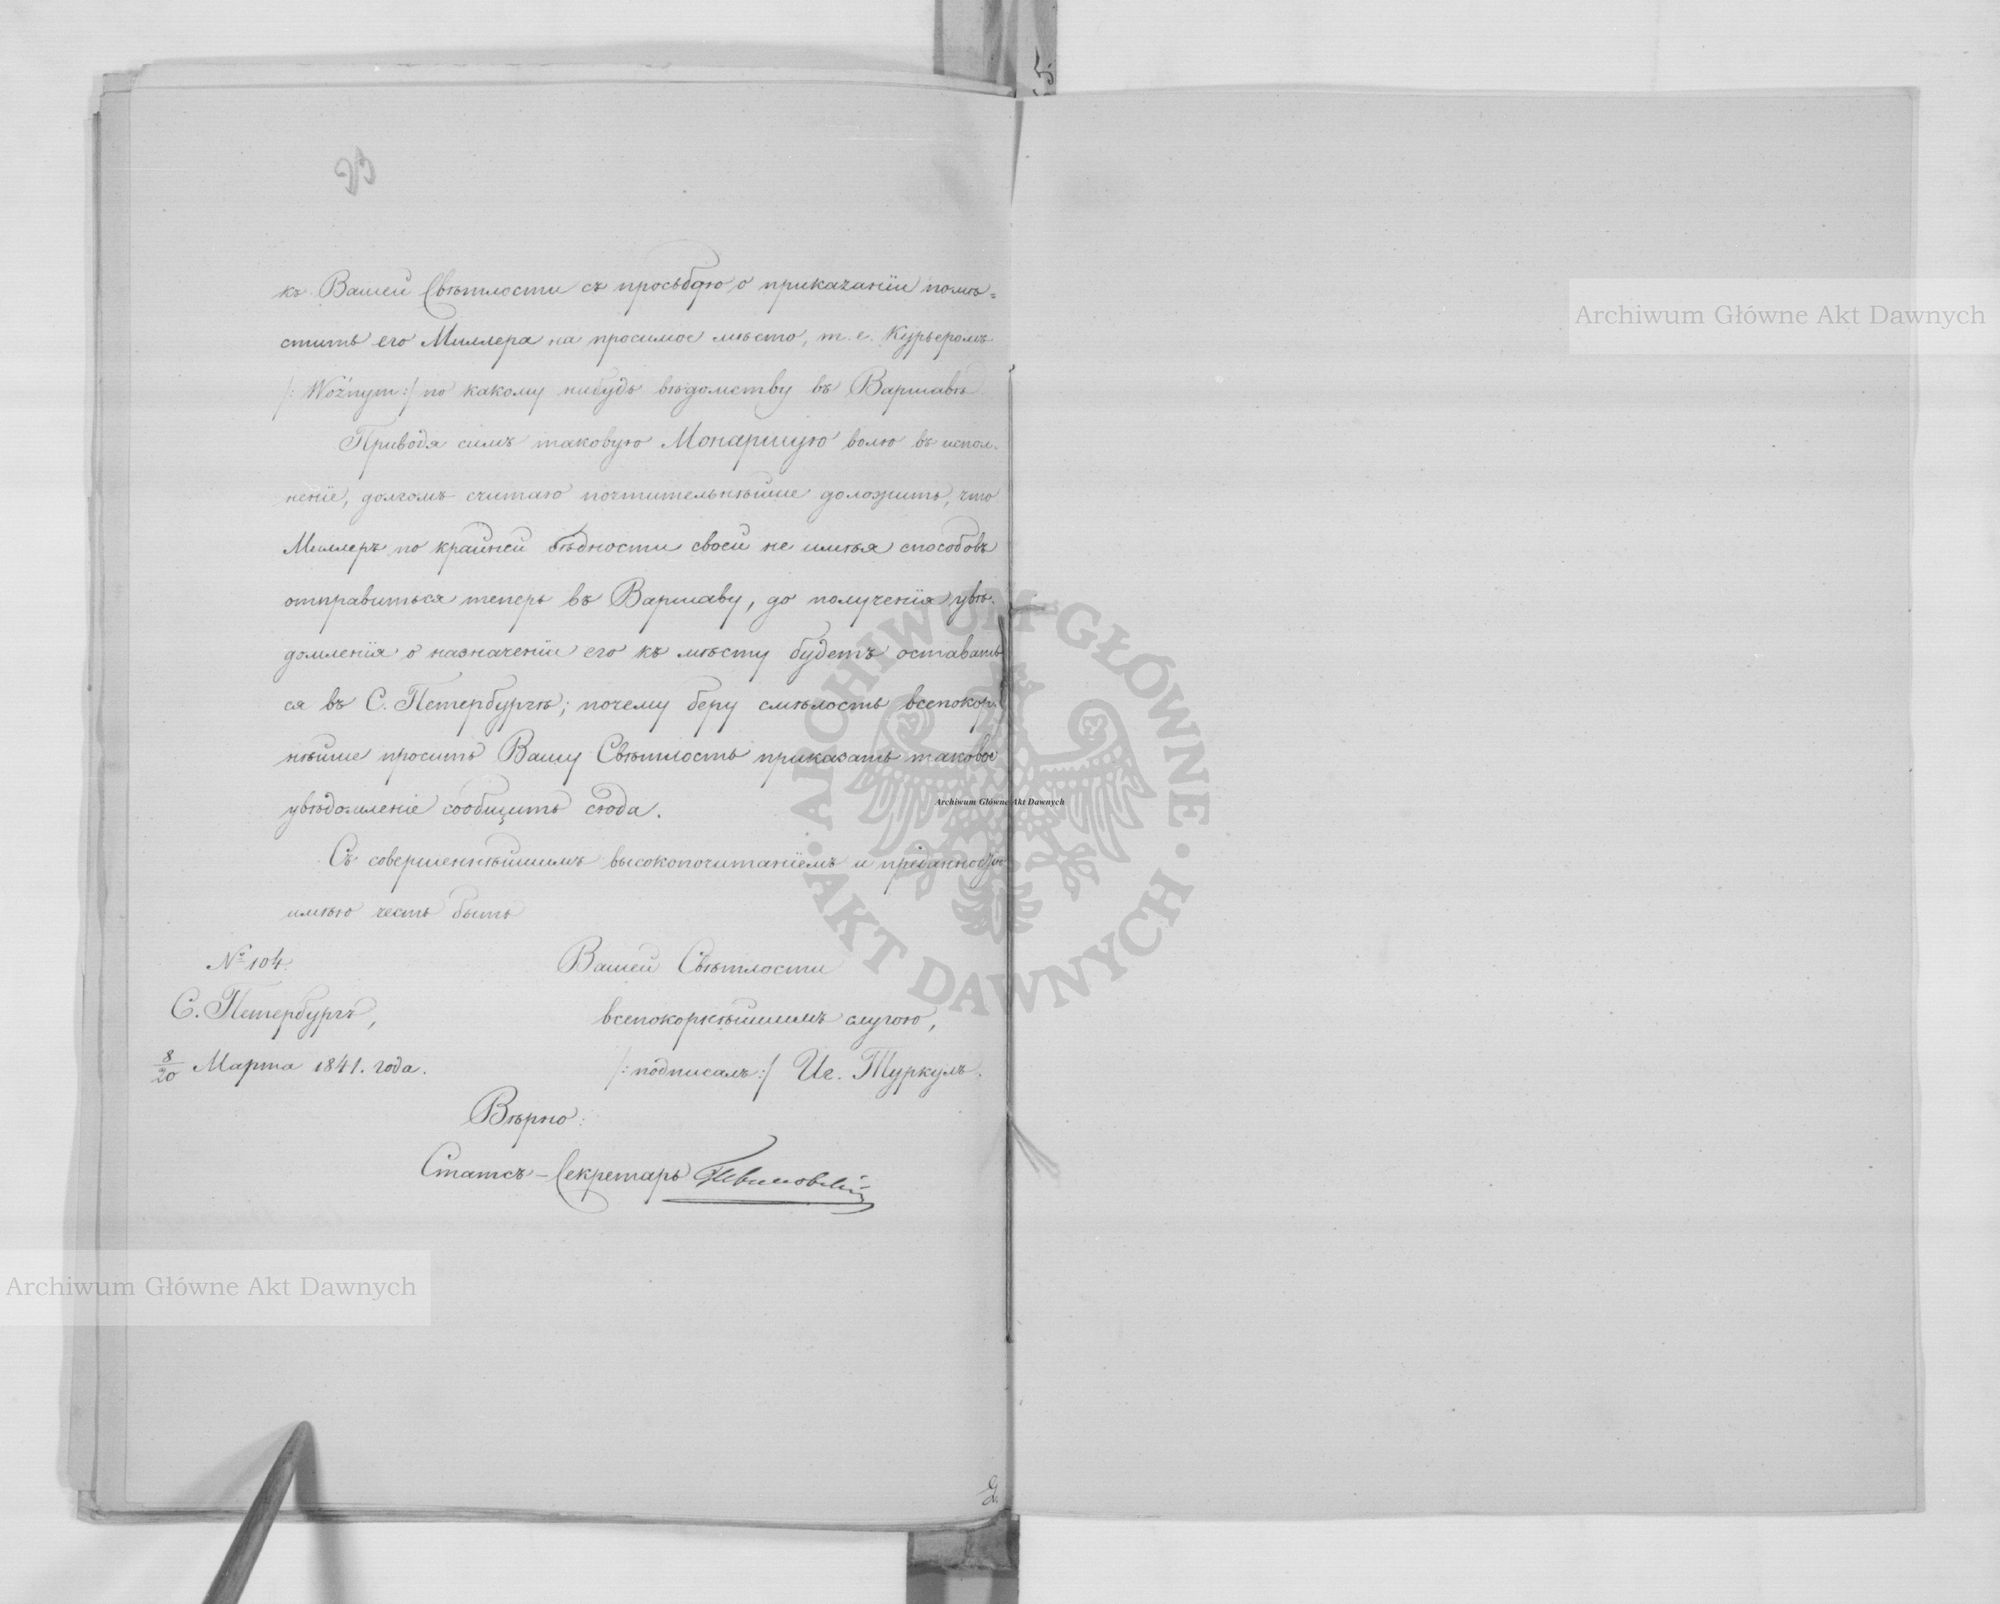 къ Вашей Свѣтлости съ просьбою о приказаніи помѣ=
стить его Миллера на просимое мѣсто, т. е. Курьеромъ
/: Woźnym :/ по какому нибудь вѣдомству въ Варшавѣ
Приводя симъ таковую Монаршую волю въ испол-
неніе, долгомъ считаю почтительнѣйше доложить, что
Миллеръ по крайней бѣдности своей не имѣя способовъ
отправиться теперь въ Варшаву, до полученія увѣ-
домленія о назначеніи его къ мѣсту будетъ оставать
ся въ С. Петербургѣ; почему беру смѣлость всепокор-
нѣйше просить Вашу Свѣтлость приказать таковое
увѣдомленіе сообщить сюда.
Съ совершеннѣйшимъ высокопочитаніемъ и преданностію
имѣю честь быть
№ 104. Вашей Свѣтлости
С. Петербургъ, всепокорнѣйшимъ слугою,
8/20 Марта 1841. года. /: подписалъ :/ Иг. Туркулъ.
Вѣрно:
Статсъ-Секретарь
Archiwum Główne Akt Dawnych
Archiwum Główne Akt Dawnych
Archiwum Główne Akt Dawnych
ARCHIWUM GŁÓWNE AKT DAWNYCH